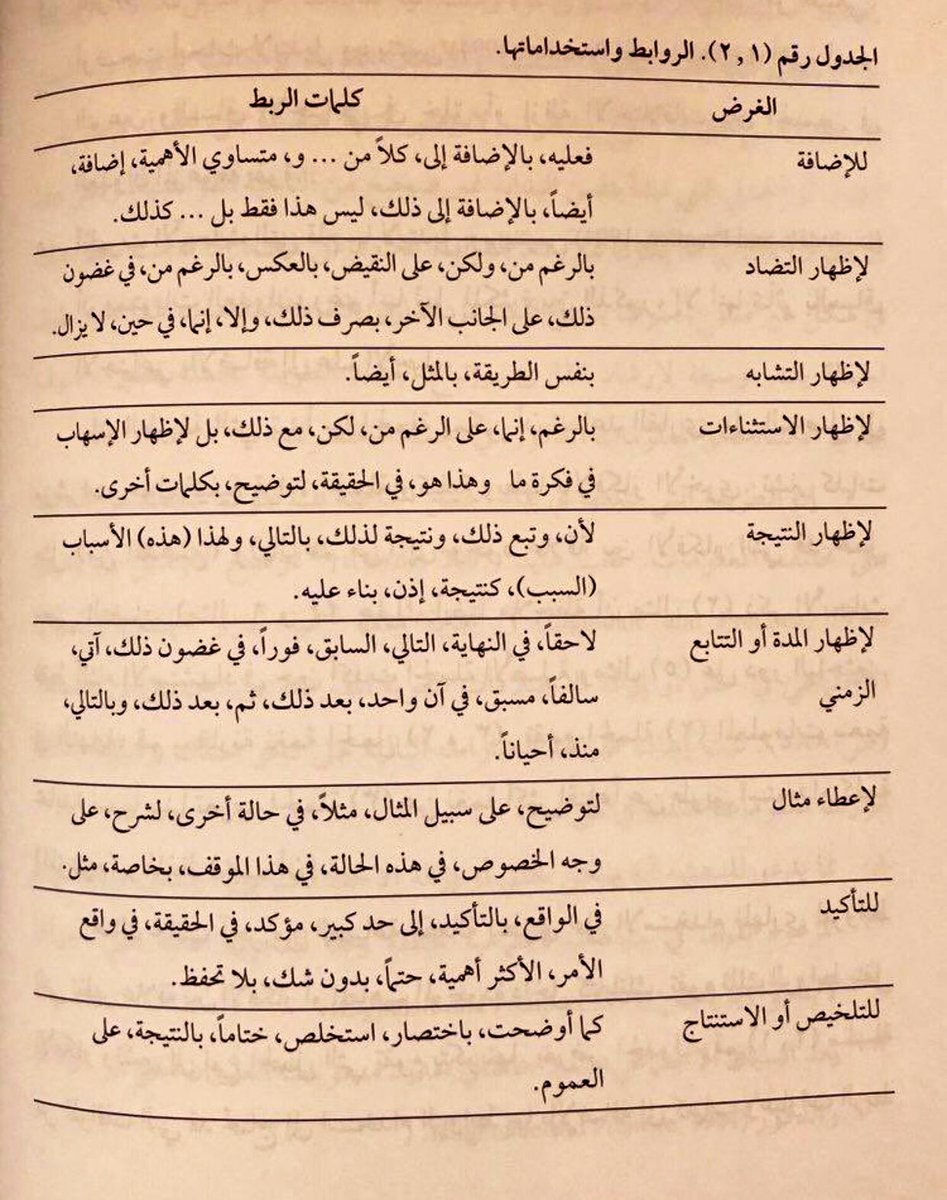 الجدول رقم (٢,١). الروابط واستخداماتها.
الغرض كلمات الربط
للإضافة فعليه، بالإضافة إلى، كلاً من ... و، متساوي الأهمية، إضافة،
أيضاً، بالإضافة إلى ذلك، ليس هذا فقط بل ... كذلك.
لإظهار التضاد بالرغم من، ولكن، على النقيض، بالعكس، بالرغم من، في غضون
ذلك، على الجانب الآخر، بصرف ذلك، وإلا، إنما، في حين، لا يزال.
لإظهار التشابه بنفس الطريقة، بالمثل، أيضاً.
لإظهار الاستثناءات بالرغم، إنما، على الرغم من، لكن، مع ذلك، بل لإظهار الإسهاب
في فكرة ما وهذا هو، في الحقيقة، لتوضيح، بكلمات أخرى.
لإظهار النتيجة لأن، وتبع ذلك، ونتيجة لذلك، بالتالي، ولهذا (هذه) الأسباب
(السبب)، كنتيجة، إذن، بناء عليه.
لإظهار المدة أو التتابع لاحقاً، في النهاية، التالي، السابق، فوراً، في غضون ذلك، آتي،
الزمني سالفاً، مسبق، في آن واحد، بعد ذلك، ثم، بعد ذلك، وبالتالي،
منذ، أحياناً.
لإعطاء مثال لتوضيح، على سبيل المثال، مثلاً، في حالة أخرى، لشرح، على
وجه الخصوص، في هذه الحالة، في هذا الموقف، بخاصة، مثل.
للتأكيد في الواقع، بالتأكيد، إلى حد كبير، مؤكد، في الحقيقة، في واقع
الأمر، الأكثر أهمية، حتماً، بدون شك، بلا تحفظ.
للتلخيص أو الاستنتاج كما أوضحت، باختصار، استخلص، ختاماً، بالنتيجة، على
العموم.